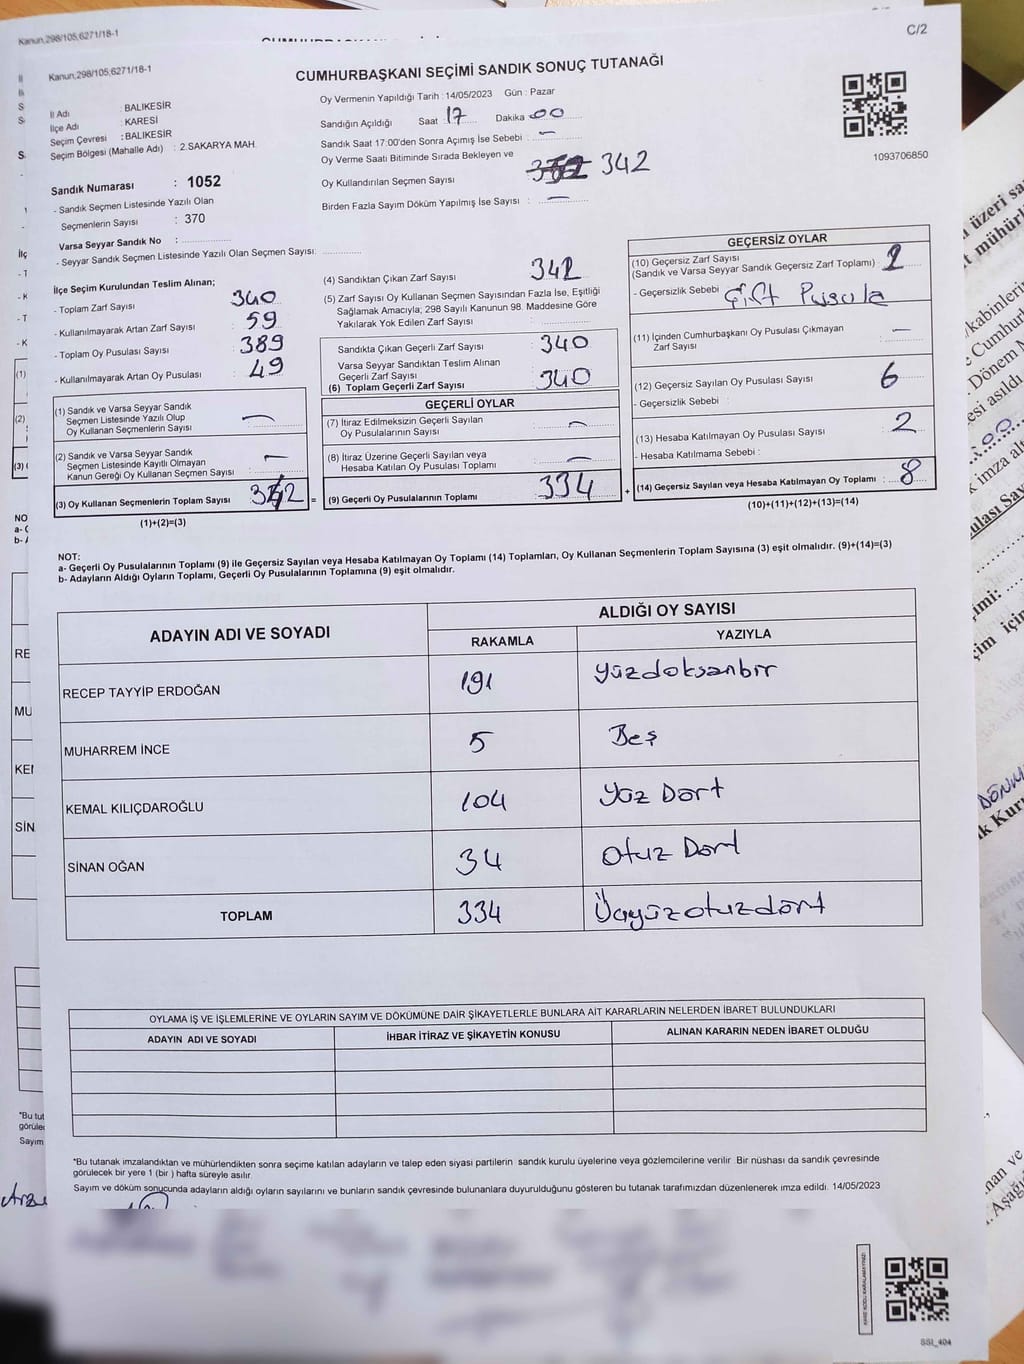 C/2
Kanun,298/105,6271/18-1
Kanun,298/105,6271/18-1
CUMHURBAŞKANI SEÇİMİ SANDIK SONUÇ TUTANAĞI
İl Adı : BALIKESİR
İlçe Adı : KARESİ
Seçim Çevresi : BALIKESİR
Seçim Bölgesi (Mahalle Adı) : 2.SAKARYA MAH.
Sandık Numarası : 1052
- Sandık Seçmen Listesinde Yazılı Olan
Seçmenlerin Sayısı : 370
Varsa Seyyar Sandık No :
- Seyyar Sandık Seçmen Listesinde Yazılı Olan Seçmen Sayısı:
Oy Vermenin Yapıldığı Tarih : 14/05/2023 Gün : Pazar
Sandığın Açıldığı Saat : 17 Dakika : 00
Sandık Saat 17:00'den Sonra Açımış İse Sebebi : —
Oy Verme Saati Bitiminde Sırada Bekleyen ve
Oy Kullandırılan Seçmen Sayısı 342
Birden Fazla Sayım Döküm Yapılmış İse Sayısı : —
1093706850
İlçe Seçim Kurulundan Teslim Alınan;
- Toplam Zarf Sayısı : 340
- Kullanılmayarak Artan Zarf Sayısı : 59
- Toplam Oy Pusulası Sayısı : 389
- Kullanılmayarak Artan Oy Pusulası : 49
(1) Sandık ve Varsa Seyyar Sandık
Seçmen Listesinde Yazılı Olup
Oy Kullanan Seçmenlerin Sayısı : —
(2) Sandık ve Varsa Seyyar Sandık
Seçmen Listesinde Kayıtlı Olmayan
Kanun Gereği Oy Kullanan Seçmen Sayısı : —
(3) Oy Kullanan Seçmenlerin Toplam Sayısı : 342 =
(1)+(2)=(3)
(4) Sandıktan Çıkan Zarf Sayısı : 342
(5) Zarf Sayısı Oy Kullanan Seçmen Sayısından Fazla İse, Eşitliği
Sağlamak Amacıyla; 298 Sayılı Kanunun 98. Maddesine Göre
Yakılarak Yok Edilen Zarf Sayısı :
Sandıkta Çıkan Geçerli Zarf Sayısı : 340
Varsa Seyyar Sandıktan Teslim Alınan
Geçerli Zarf Sayısı
(6) Toplam Geçerli Zarf Sayısı : 340
GEÇERLİ OYLAR
(7) İtiraz Edilmeksizin Geçerli Sayılan
Oy Pusulalarının Sayısı : —
(8) İtiraz Üzerine Geçerli Sayılan veya
Hesaba Katılan Oy Pusulası Toplamı : —
(9) Geçerli Oy Pusulalarının Toplamı : 334 +
GEÇERSİZ OYLAR
(10) Geçersiz Zarf Sayısı
(Sandık ve Varsa Seyyar Sandık Geçersiz Zarf Toplamı) :
- Geçersizlik Sebebi : Çift Pusula
(11) İçinden Cumhurbaşkanı Oy Pusulası Çıkmayan
Zarf Sayısı : —
(12) Geçersiz Sayılan Oy Pusulası Sayısı : 6
- Geçersizlik Sebebi :
(13) Hesaba Katılmayan Oy Pusulası Sayısı : 2
- Hesaba Katılmama Sebebi :
(14) Geçersiz Sayılan veya Hesaba Katılmayan Oy Toplamı : 8
(10)+(11)+(12)+(13)=(14)
NOT:
a- Geçerli Oy Pusulalarının Toplamı (9) ile Geçersiz Sayılan veya Hesaba Katılmayan Oy Toplamı (14) Toplamları, Oy Kullanan Seçmenlerin Toplam Sayısına (3) eşit olmalıdır. (9)+(14)=(3)
b- Adayların Aldığı Oyların Toplamı, Geçerli Oy Pusulalarının Toplamına (9) eşit olmalıdır.
ADAYIN ADI VE SOYADI ALDIĞI OY SAYISI
RAKAMLA YAZIYLA
RECEP TAYYİP ERDOĞAN 191 yüzdoksanbir
MUHARREM İNCE 5 Beş
KEMAL KILIÇDAROĞLU 104 Yüz Dört
SİNAN OĞAN 34 Otuz Dört
TOPLAM 334 Üçyüzotuzdört
OYLAMA İŞ VE İŞLEMLERİNE VE OYLARIN SAYIM VE DÖKÜMÜNE DAİR ŞİKAYETLERLE BUNLARA AİT KARARLARIN NELERDEN İBARET BULUNDUKLARI
ADAYIN ADI VE SOYADI İHBAR İTİRAZ VE ŞİKAYETİN KONUSU ALINAN KARARIN NEDEN İBARET OLDUĞU
*Bu tutanak imzalandıktan ve mühürlendikten sonra seçime katılan adayların ve talep eden siyasi partilerin sandık kurulu üyelerine veya gözlemcilerine verilir Bir nüshası da sandık çevresinde
görülecek bir yere 1 (bir ) hafta süreyle asılır.
Sayım ve döküm sonucunda adayların aldığı oyların sayılarını ve bunların sandık çevresinde bulunanlara duyurulduğunu gösteren bu tutanak tarafımızdan düzenlenerek imza edildi. 14/05/2023
SSI_404